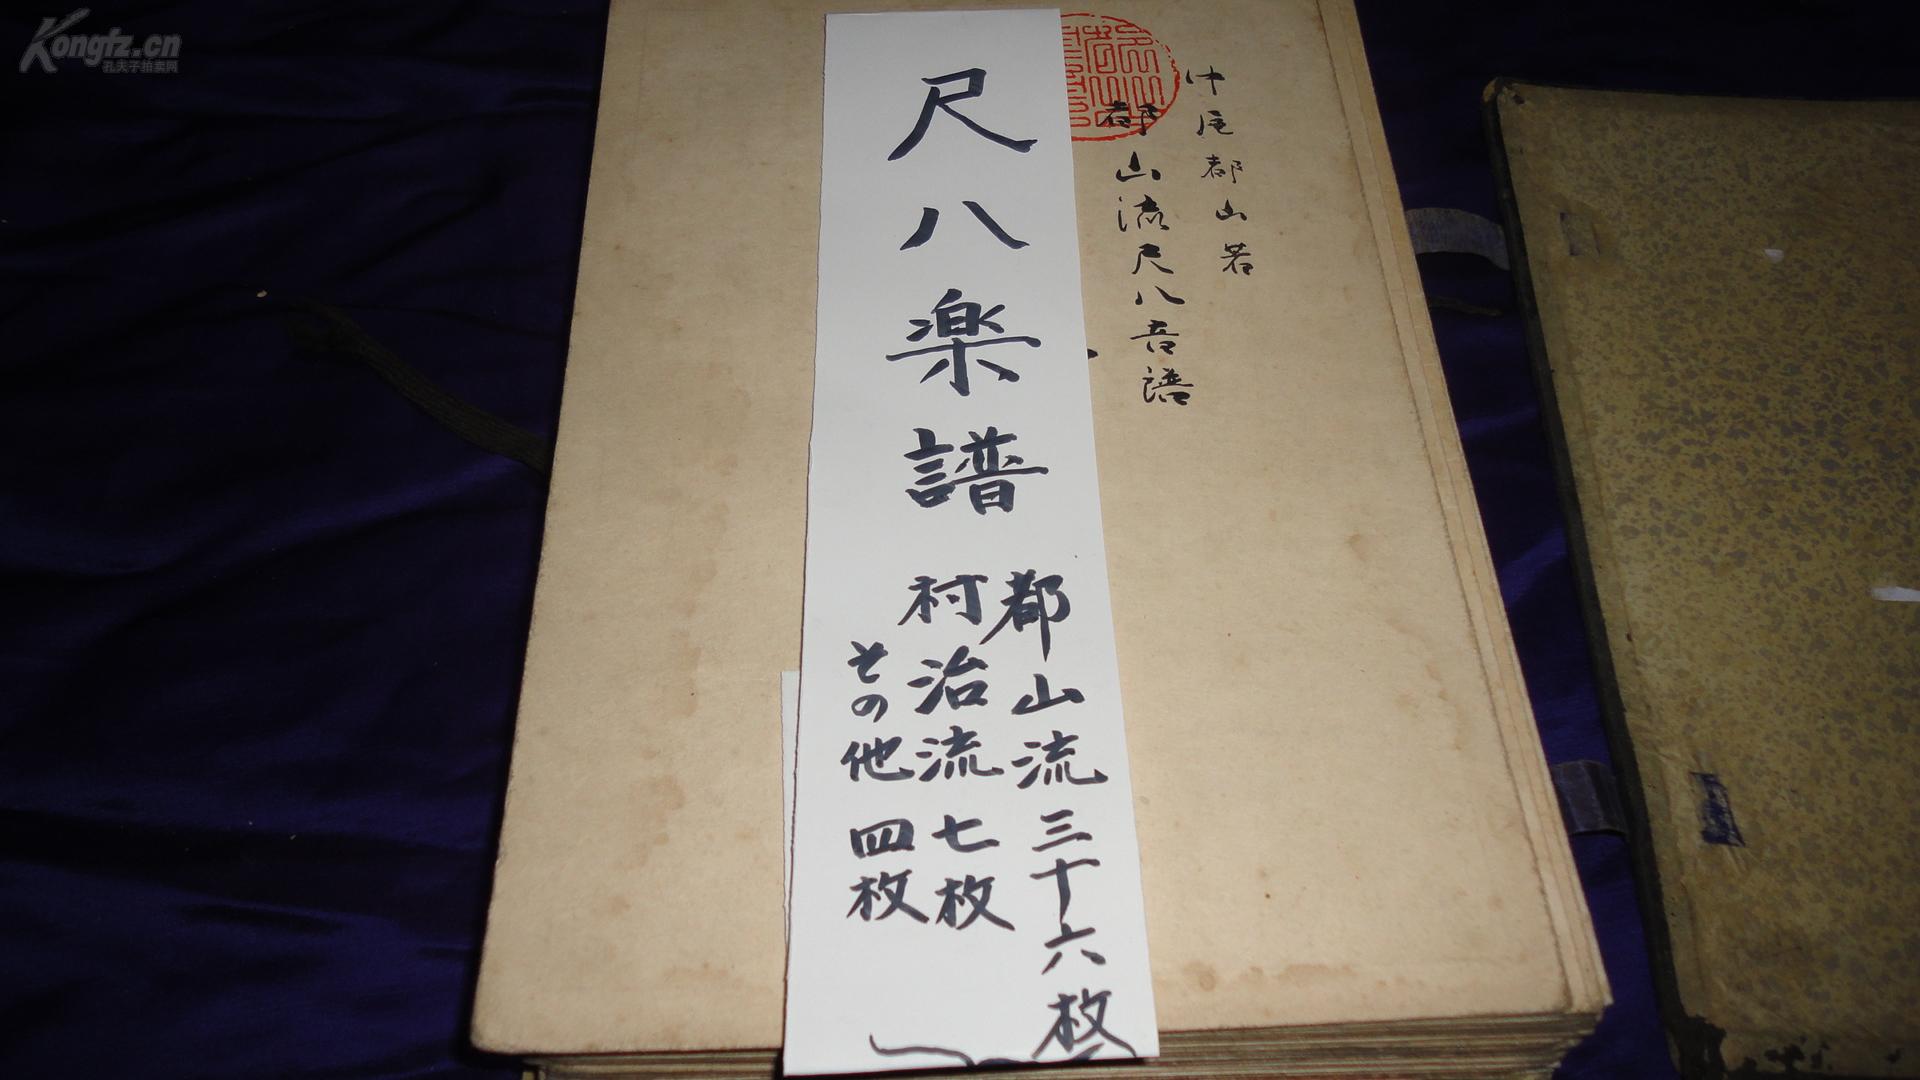 Kongfz.cn
孔夫子拍卖网
中尾都山著
都山流尺八音譜
尺八楽譜
都山流三十六枚
村治流七枚
その他四枚